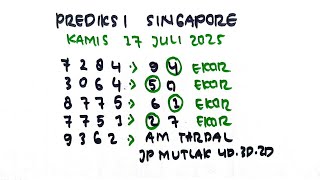 PREDIKSI SINGAPORE
KAMIS 27 JULI 2025
7284 > 94 EKOR
3064 > 50 EKOR
8775 > 61 EKOR
7751 > 27 EKOR
9362 > AM TARDAL
JP MUTLAK 4D.3D.2D